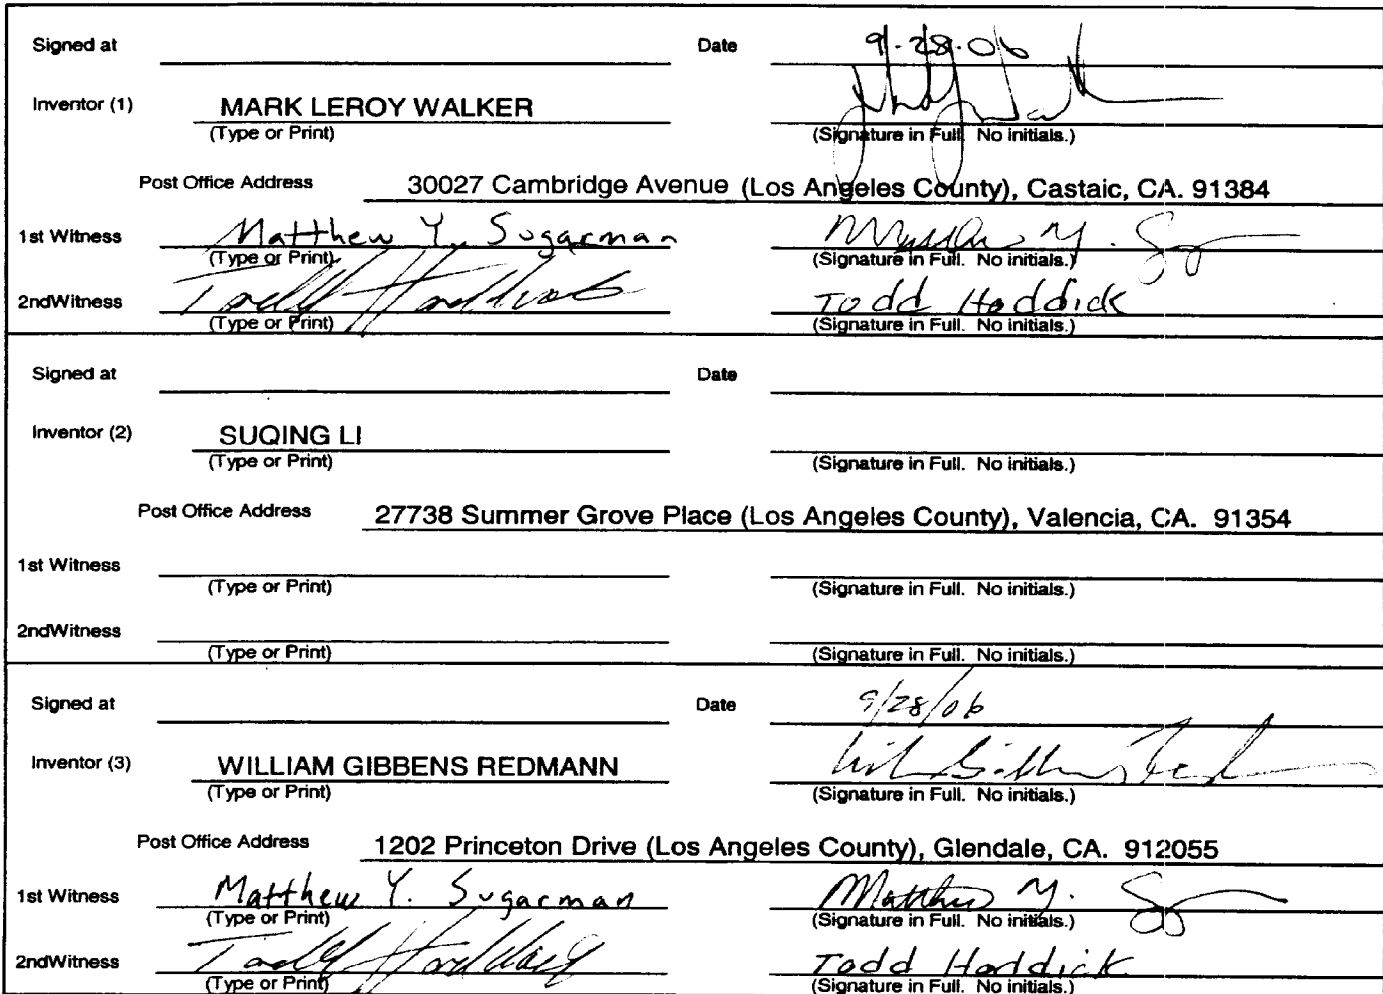 Signed at Date 9-28-06
Inventor (1) MARK LEROY WALKER
(Type or Print) (Signature in Full. No initials.)
Post Office Address 30027 Cambridge Avenue (Los Angeles County), Castaic, CA. 91384
1st Witness Matthew Y. Sugarman Matthew Y.
(Type or Print) (Signature in Full. No initials.)
2ndWitness Todd Haddick Todd Haddick
(Type or Print) (Signature in Full. No initials.)
Signed at Date
Inventor (2) SUQING LI
(Type or Print) (Signature in Full. No initials.)
Post Office Address 27738 Summer Grove Place (Los Angeles County), Valencia, CA. 91354
1st Witness
(Type or Print) (Signature in Full. No initials.)
2ndWitness
(Type or Print) (Signature in Full. No initials.)
Signed at Date 9/28/06
Inventor (3) WILLIAM GIBBENS REDMANN
(Type or Print) (Signature in Full. No initials.)
Post Office Address 1202 Princeton Drive (Los Angeles County), Glendale, CA. 912055
1st Witness Matthew Y. Sugarman Matthew Y.
(Type or Print) (Signature in Full. No initials.)
2ndWitness Todd Haddick Todd Haddick
(Type or Print) (Signature in Full. No initials.)